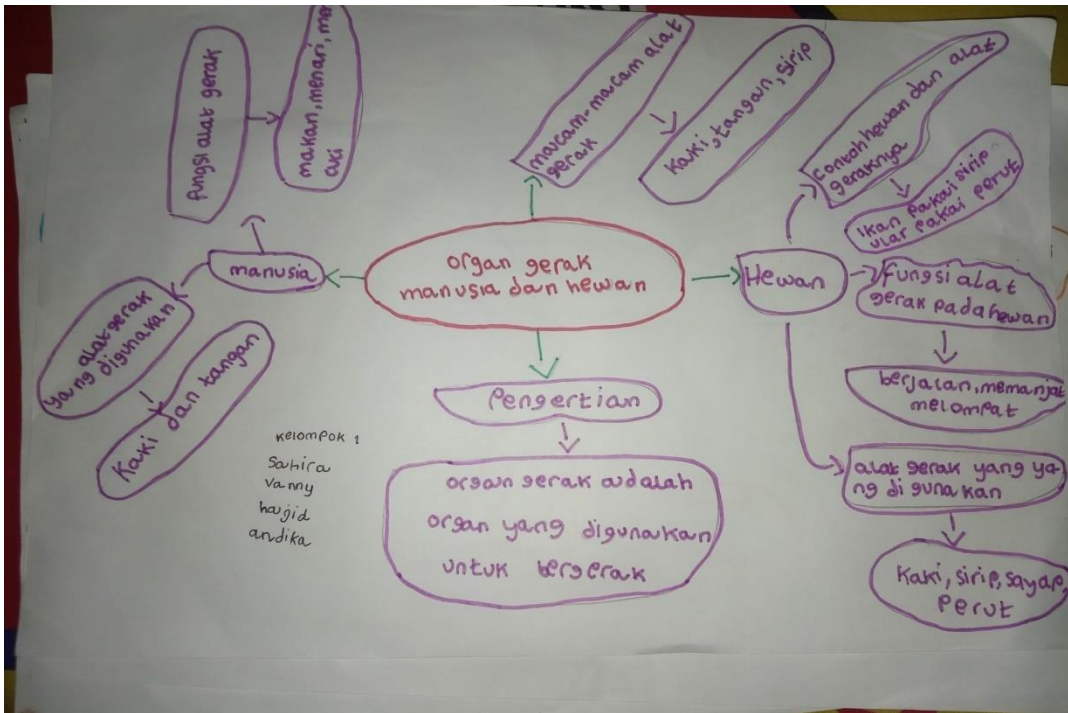 organ gerak
manusia dan hewan
manusia
fungsi alat gerak
makan, menari, men
cuci
alat gerak
yang digunakan
Kaki dan tangan
macam-macam alat
gerak
Kaki, tangan, sirip
Hewan
contoh hewan dan alat
geraknya
Ikan pakai sirip
ular pakai perut
fungsi alat
gerak pada hewan
berjalan, memanjat
melompat
alat gerak yang ya-
ng di gunakan
Kaki, sirip, sayap,
perut
Pengertian
organ gerak adalah
organ yang digunakan
untuk bergerak
Kelompok :
Sahira
Vanny
hajid
andika